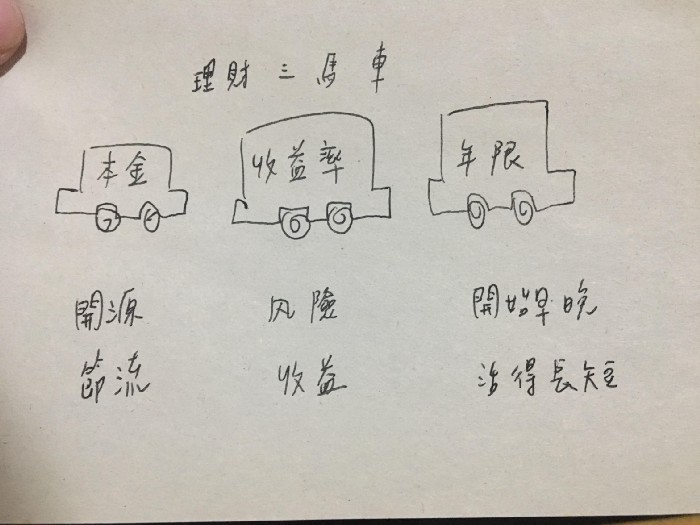 理財三馬車
本金 收益率 年限
開源 风險 開始早晚
節流 收益 活得長短